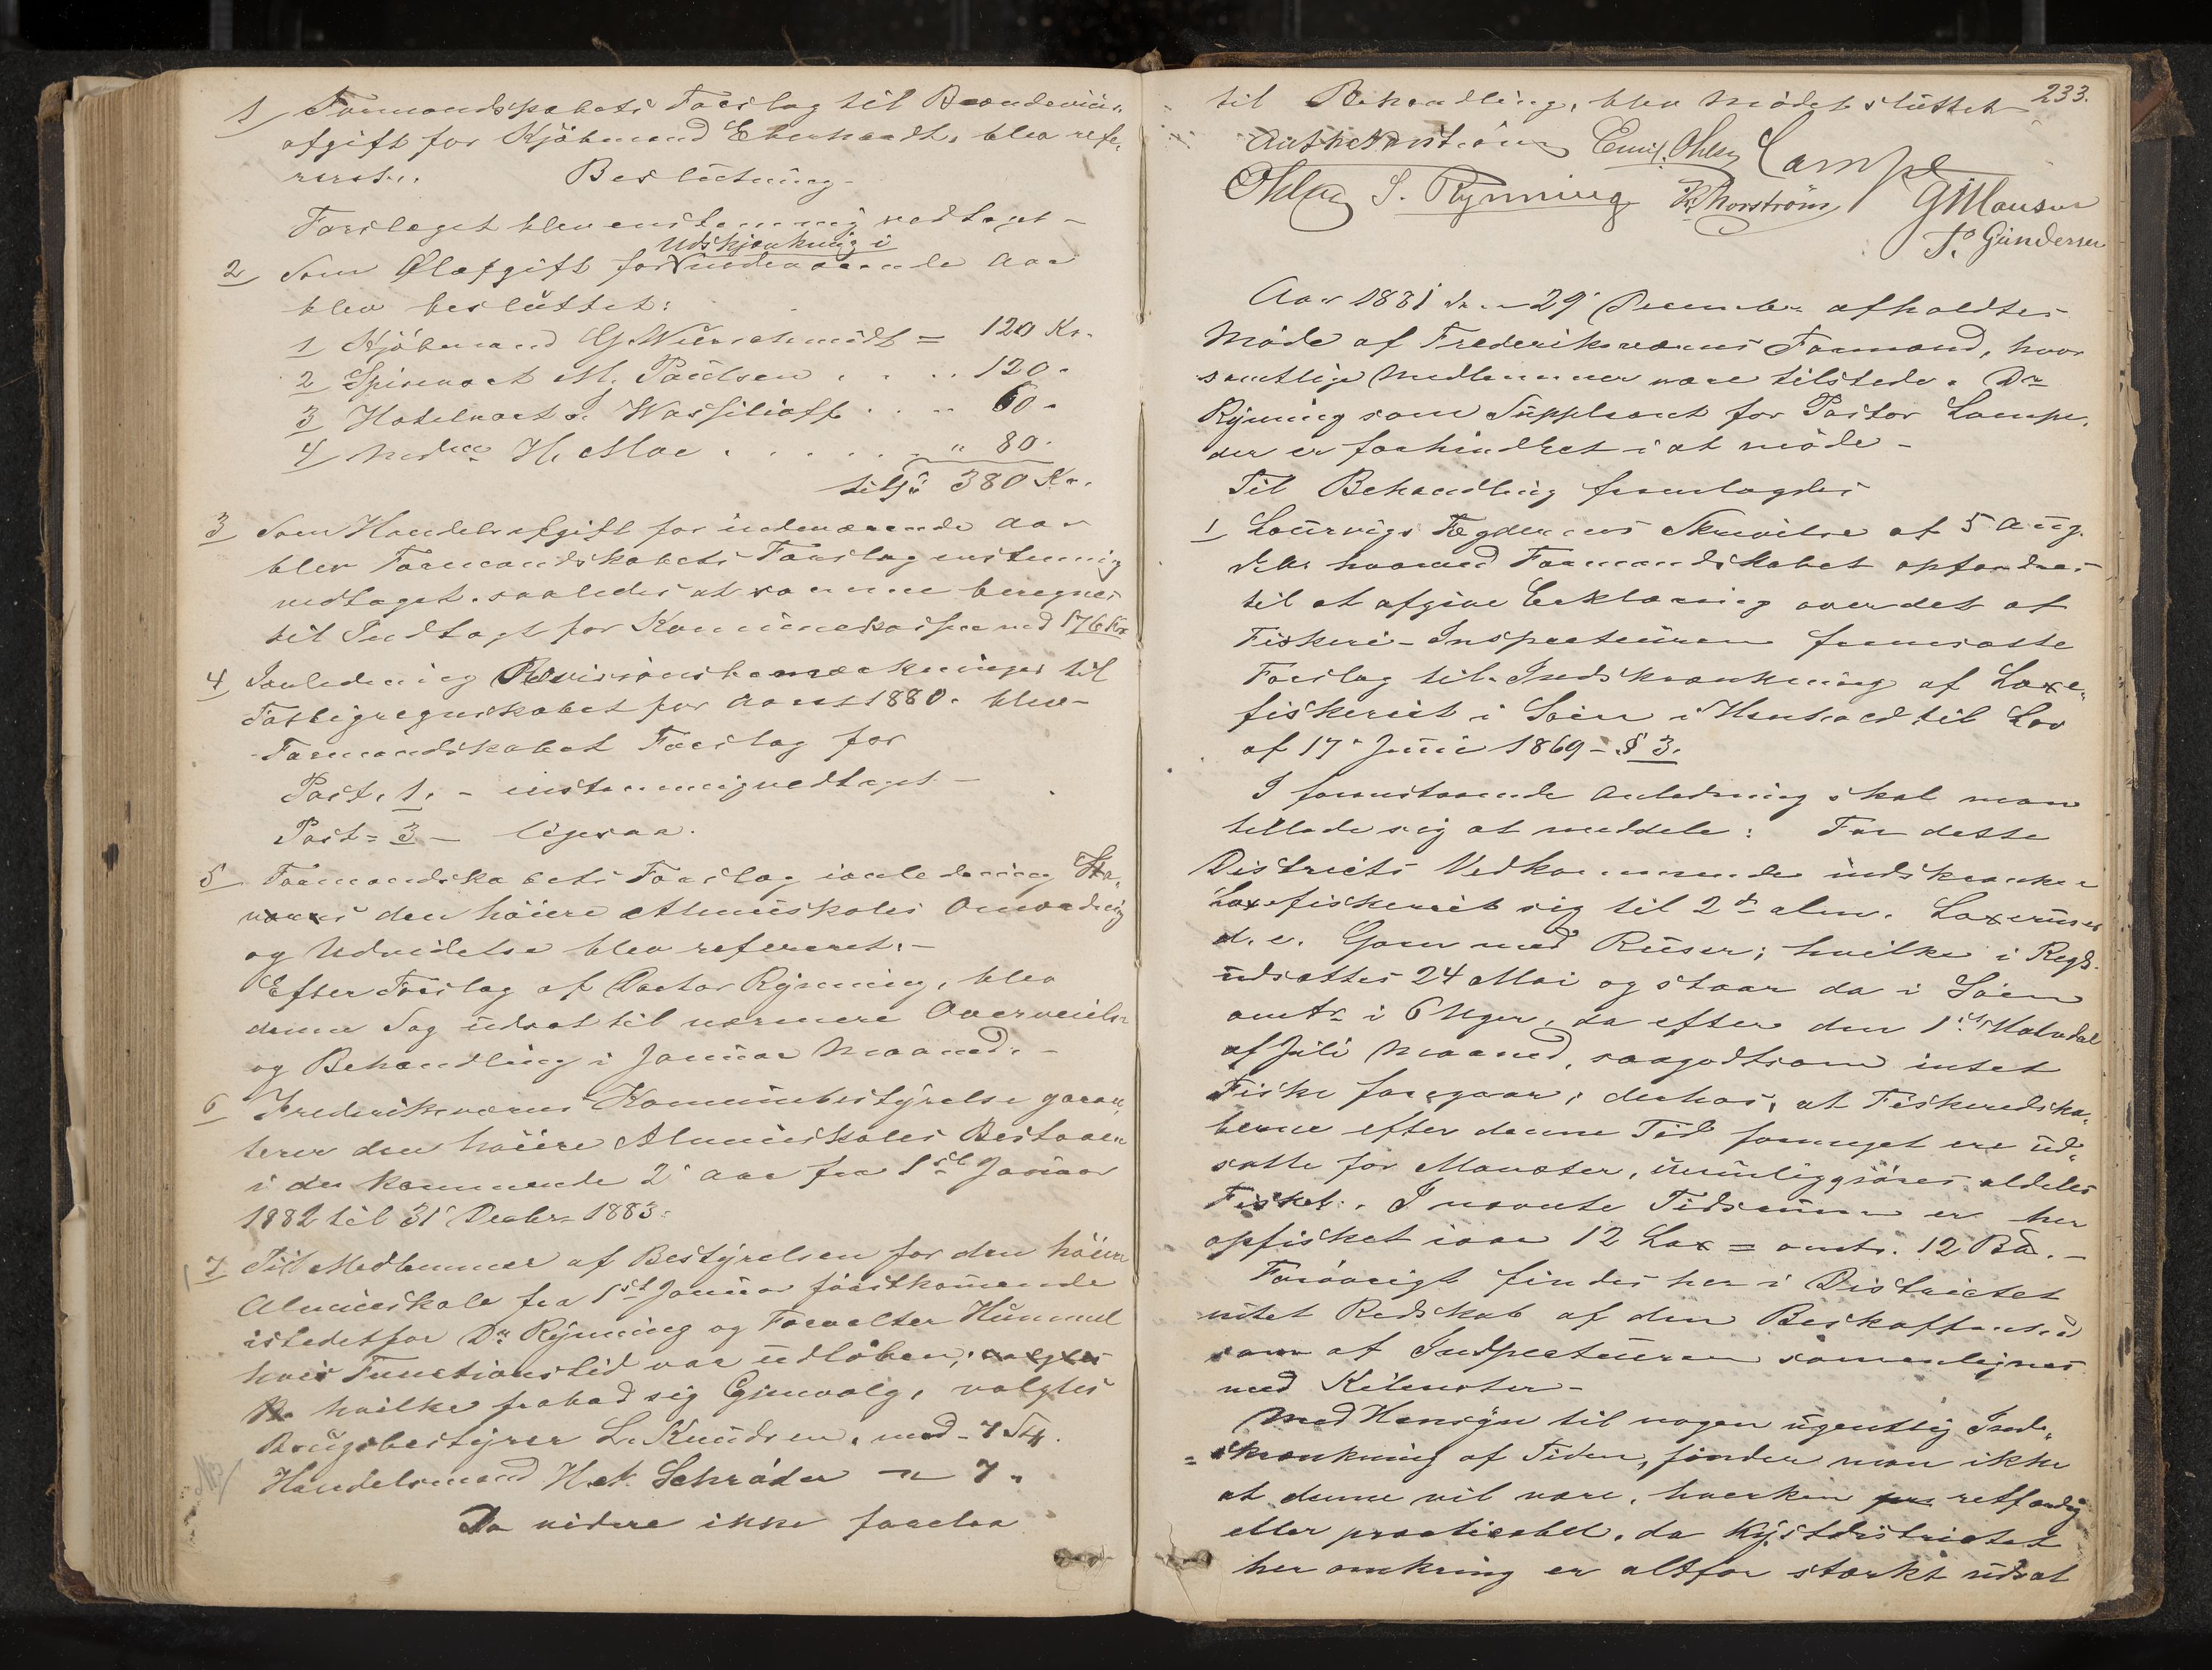 1 Formandskabets Forslag til Brændeviins-
afgift for Kjöbmand Eberhardt, blev refe-
reret.. Beslutning-
Forslaget blev enstemmig vedtaget-
Udskjænkning i
2 Som Ølafgift for indeværende Aar
blev besluttet:
1 Kjöbmand G. Würschmidt = 120 Kr.
2 Spisevært M. Paulsen . . . . 120 "
3 Hotelvært Wassilioff . . . . 60 "
4 Mad. H. Moe . . . . . . " 80 "
tils. 380 Kr.
3 Som Handelsafgift for indeværende Aar
blev Formandskabets Forslag enstemmig
vedtaget. saaledes at samme beregnes
til Indtægt for Kommunekassen med 176 Kr
4 Ianledning Revisionsbemærkninger til
Fattigregnskabet for Aaret 1880. blev-
Formandskabet Forslag for
Post. 1. - enstemmig vedtaget-
Post = 3 - ligesaa.
5 Formandskabets Forslag ianledning Sta-
værns den höiere Almueskoles Omordning
og Udvidelse blev refereret.-
Efter Forslag af Doctor Rynning, blev
denne Sag udsat til nærmere Overveielse
og Behandling i Januar Maaned.-
6 Frederiksværns Kommunebestyrelse garan-
terer den höiere Almueskoles Bestaaen
i de kommende 2 Aar fra 1st Januar
1882 til 31 Decbr 1883.
7 Til Medlemmer af Bestyrelsen for den höiere
Almueskole fra 1st Januar förstkommende
istedetfor Dr Rynning og Forvalter Hummel
hvis Functionstid var udlöben, valgtes
hvilke frabad sig Gjenvalg, valgtes
Brugsbestyrer L. Knudsen, med - 7 St.
Handelsmand H. A. Schröder " 7 "
Da videre ikke forelaa
233.
til Behandling, blev Mödet sluttet
Emil Ohlsen Lampe
Ohlsen S. Rynning Norström G M Hansen
P. Gundersen
Aar 1881 den 29 December afholdtes
Möde af Frederiksværns Formænd, hvor
samtlige Medlemmer vare tilstede. Dr
Rynning som Suppleant for Pastor Lampe,
der er forhindret i at möde-
Til Behandling fremlagdes
1 Laurvigs Fogderies Skrivelse af 5 Aug.
hvorved Formandskabet opfordres
til at afgive Erklæring over det af
Fiskeri-Inspecteuren fremsatte
Forslag til Indskrænkning af Laxe-
fiskeriet i Söen i Henhold til Lov
af 17 Juni 1869 - § 3.
I foranstaaende Anledning skal man
tillade sig at meddele: For dette
Districts Vedkommende indskrænker
Laxefiskeriet sig til 2de alm. Laxeruser
d. e. Garn med Ruser; hvilke i Regl.
udsættes 24 Mai og staar da i Söen
omtr i 6 Uger, da efter den 1ste Halvdel
af Juli Maaned, saagodtsom intet
Fiske foregaar; derhos, at Fiskeredska-
berne efter denne Tid formeget ere ud-
satte for Manæter, umuliggjöres aldeles
Fisket.. I nævnte Tidsrum er her
opfisket iaar 12 Lax = omtr. 12 Bd.-
Forövrigt findes her i Districtet
intet Redskab af den Beskaffenhed
som af Inspecteuren sammenlignes
med Kilenöter-
Med Hensyn til nogen ugentlig Ind-
skrænkning af Tiden, finder man ikke
at denne vil være, hverken retfærdig
eller practicabel, da Kystdistrictet
her omkring er altfor stærkt udsat